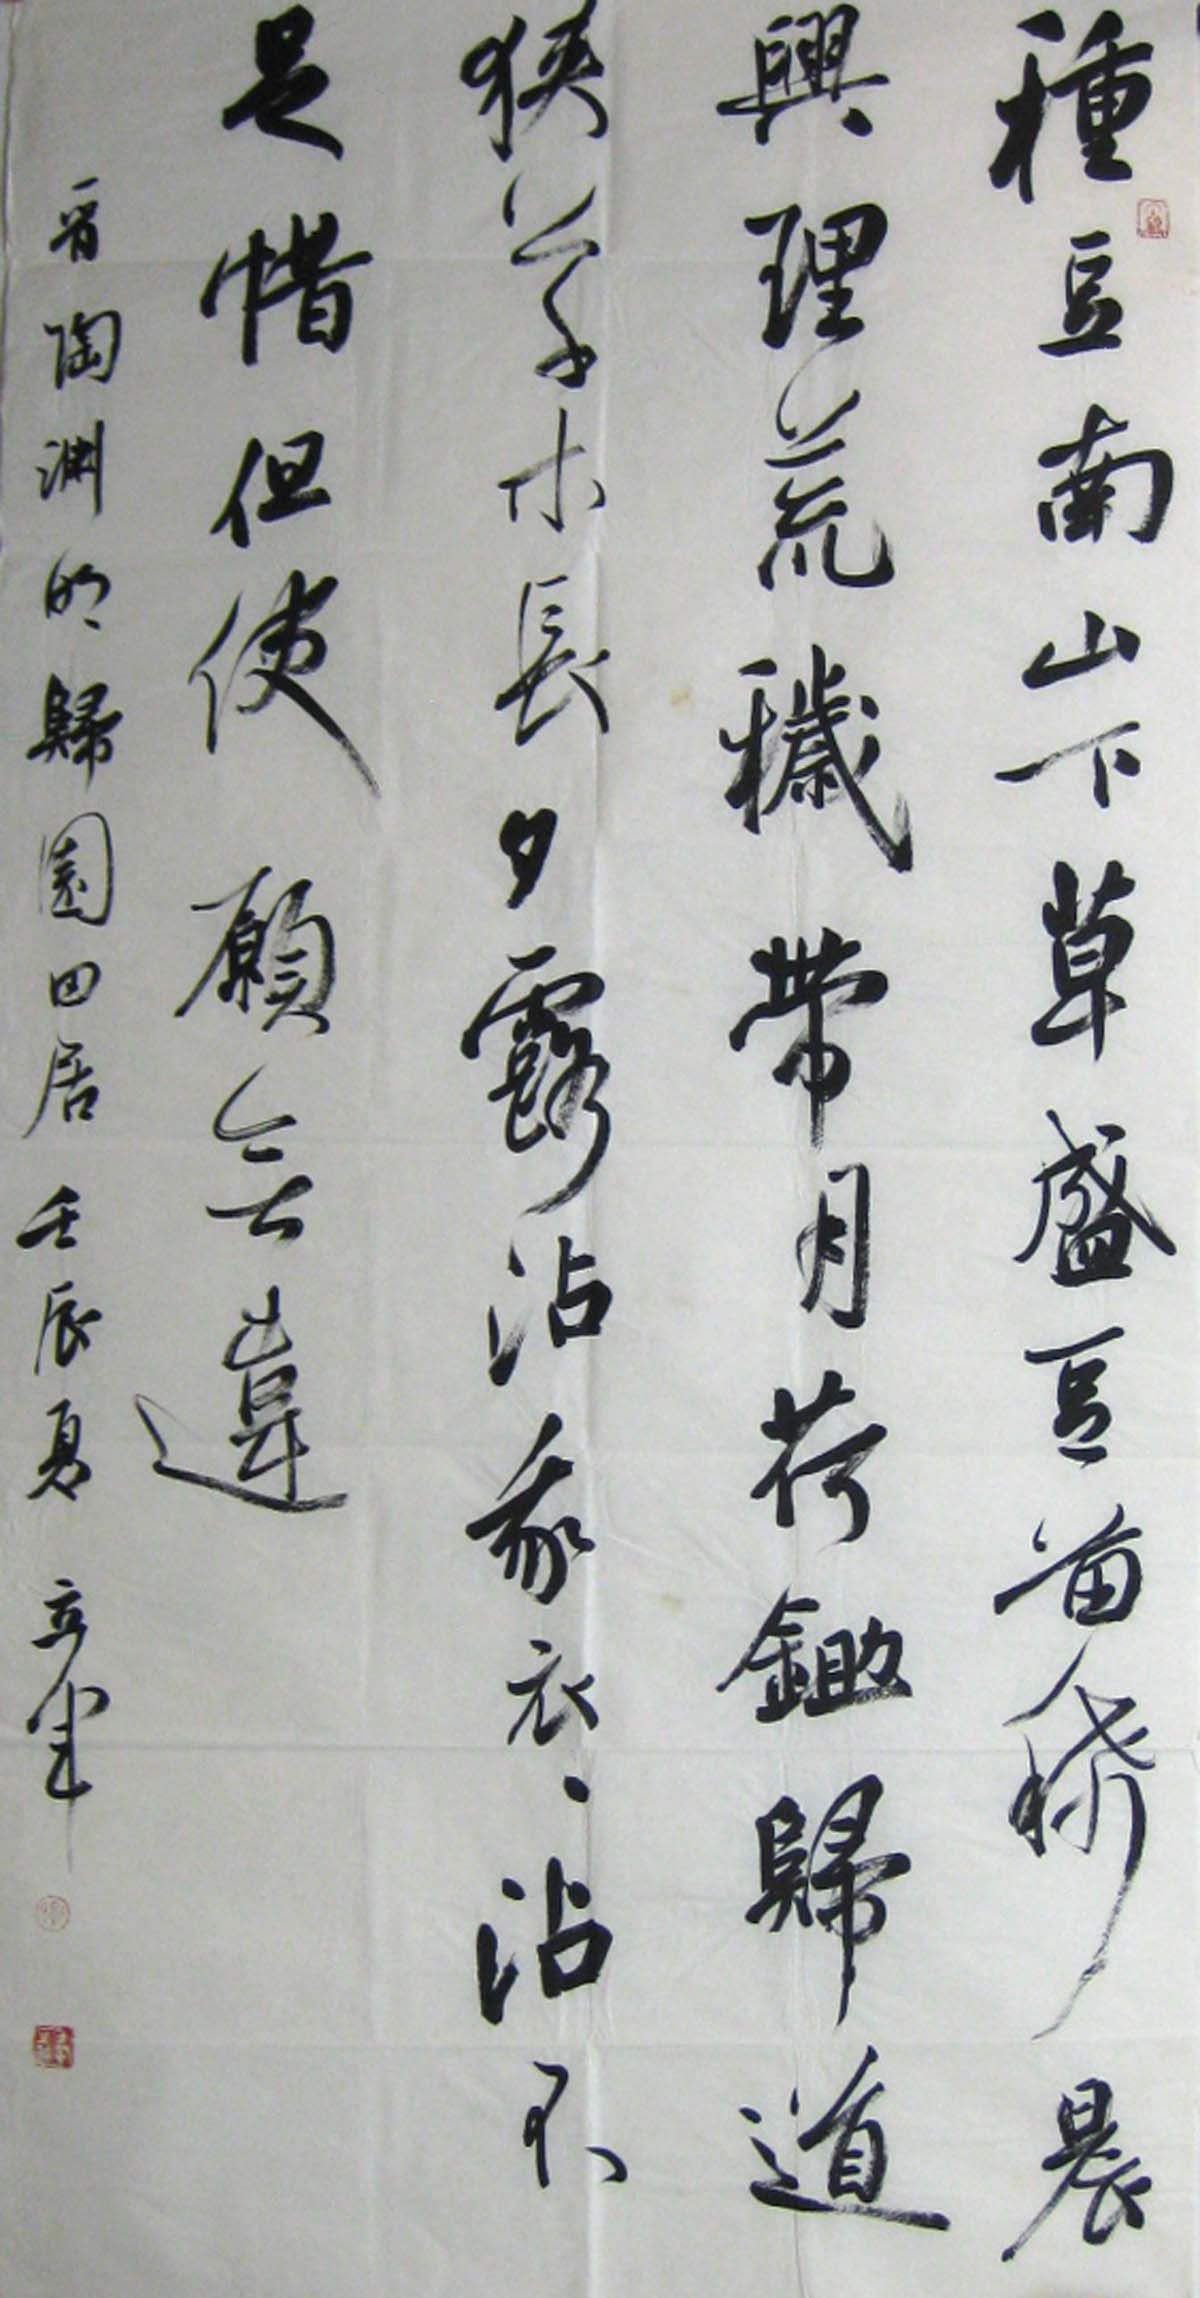 種豆南山下草盛豆苗稀晨
興理荒穢帶月荷鋤歸道
狹草木長夕露沾我衣、沾不
足惜但使願無違
晋陶渊明歸園田居 壬辰夏 立